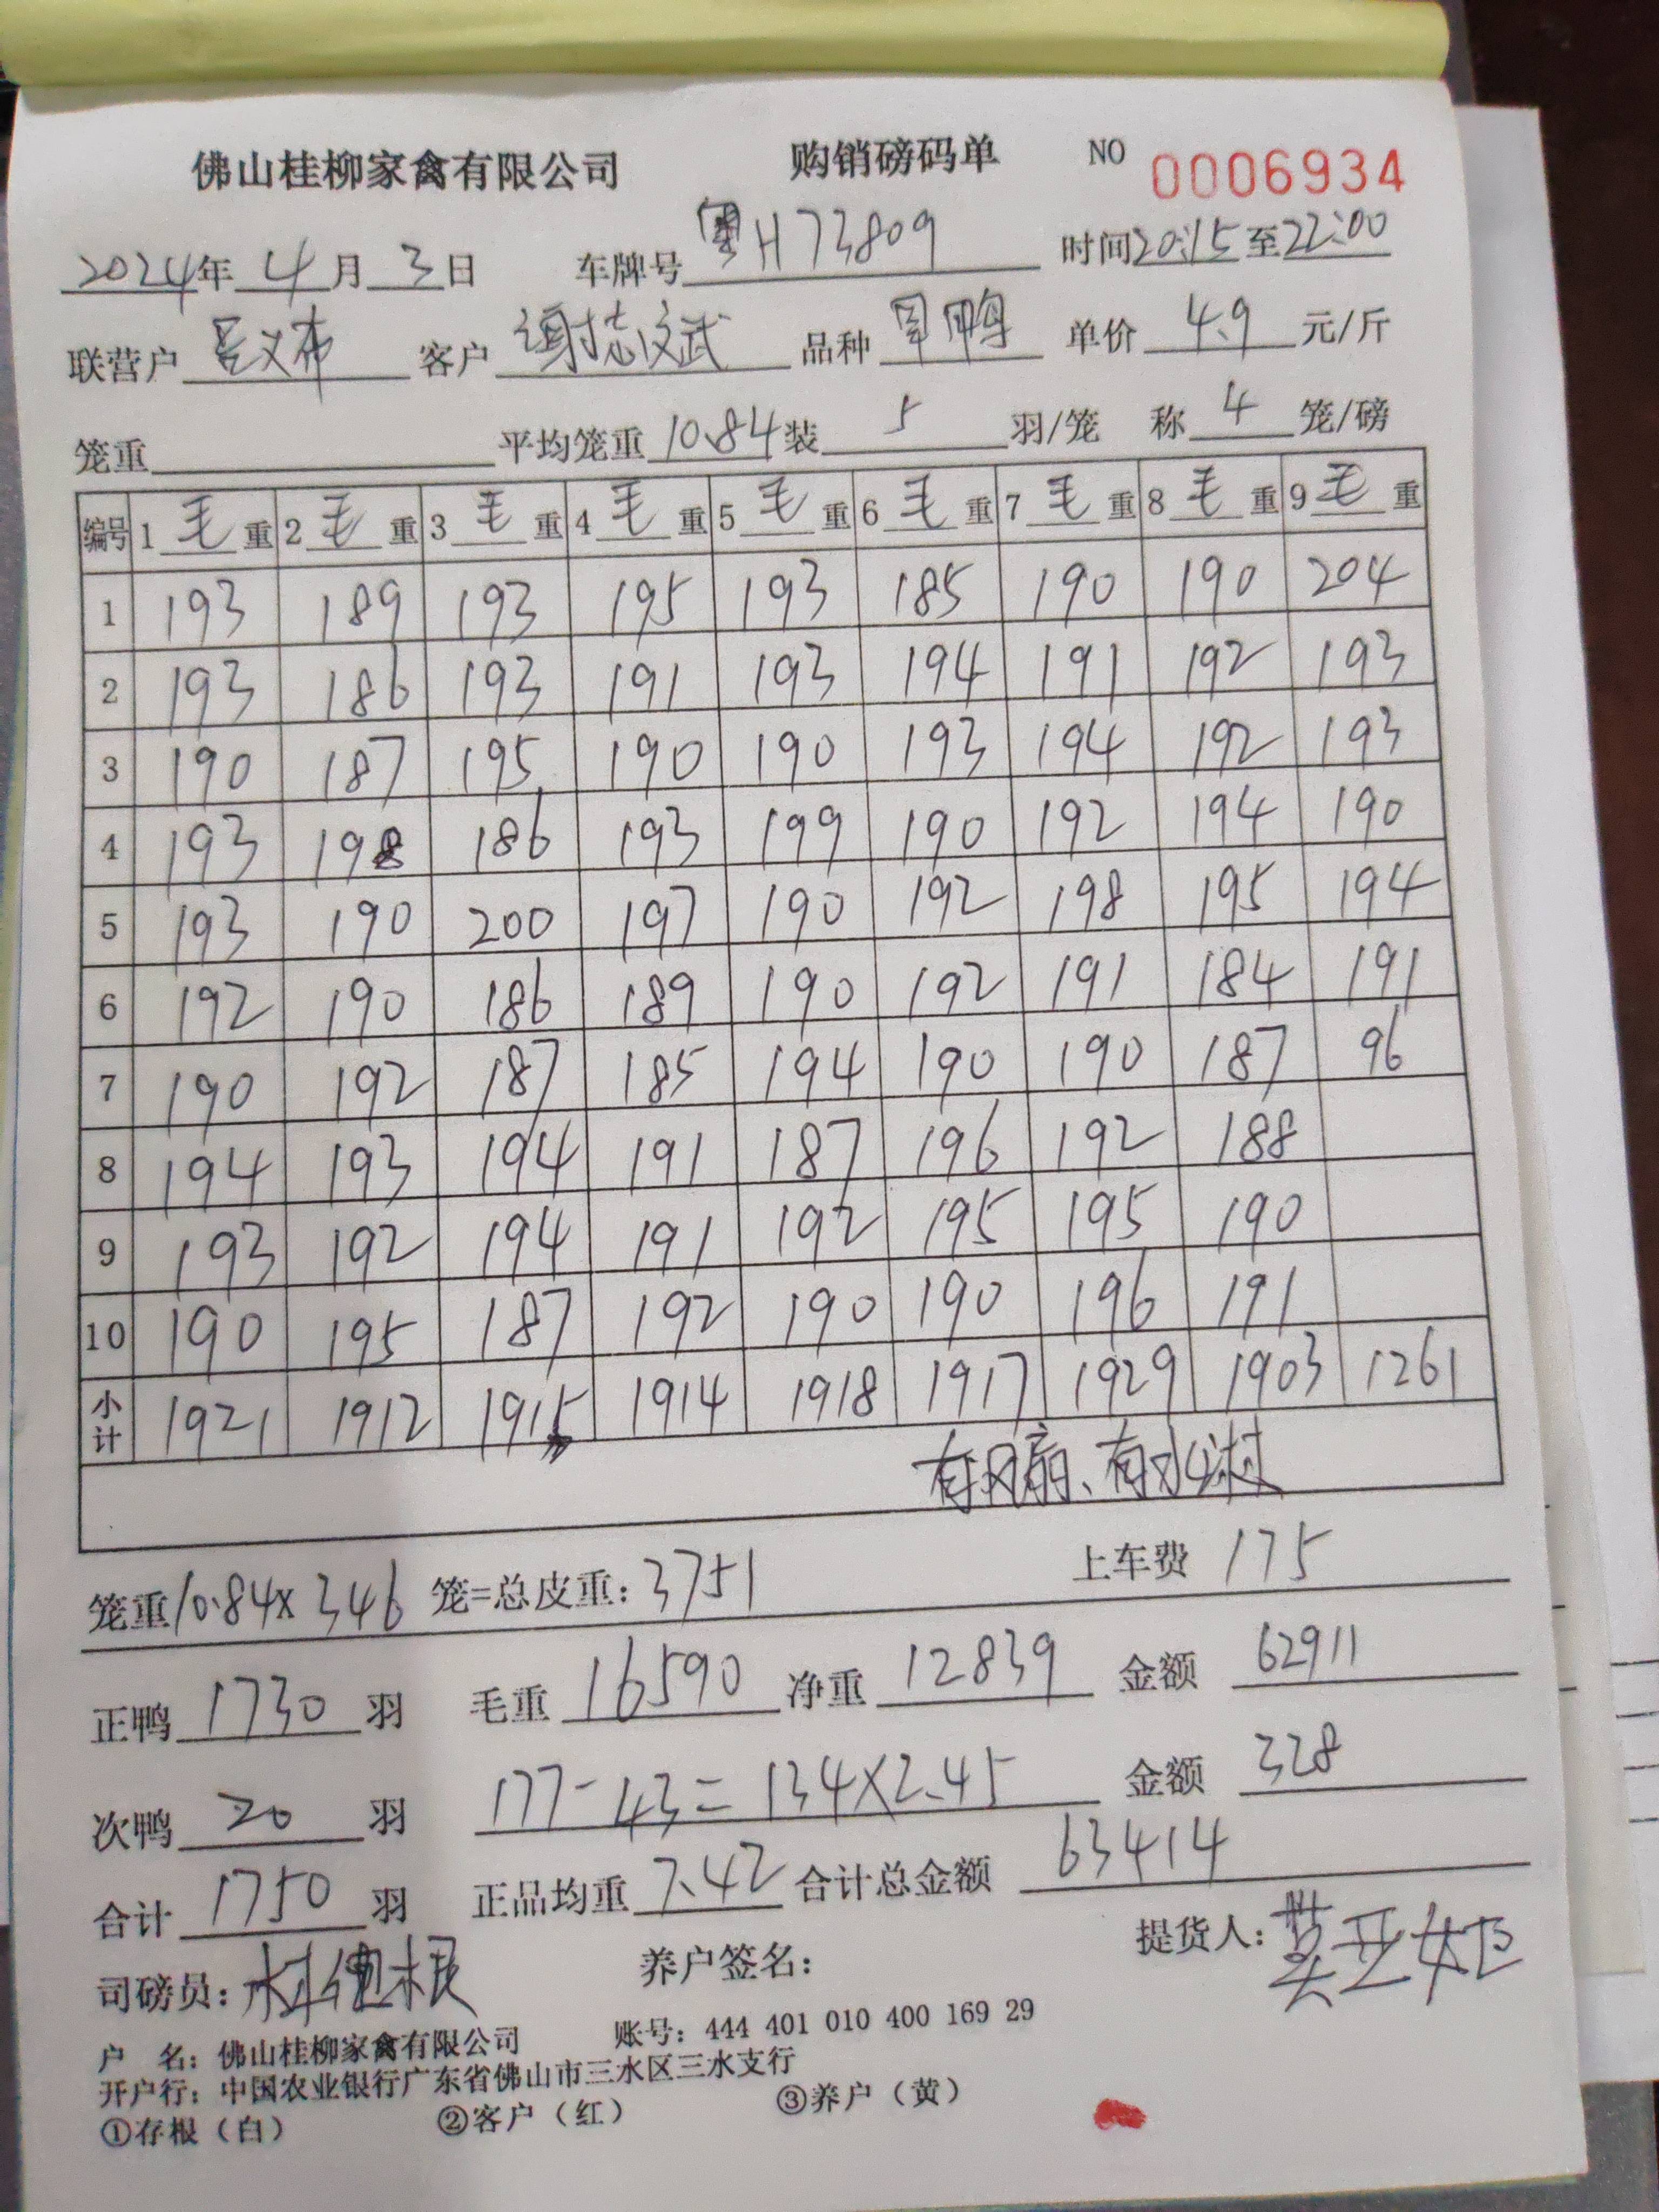 佛山桂柳家禽有限公司 购销磅码单 NO 0006934
2024年 4月 3日 车牌号 粤H73809 时间20:15至22:00
联营户 吕义布 客户 谢志斌 品种 鸭 单价 4.9 元/斤
笼重 平均笼重 10.84 装 5 羽/笼 称 4 笼/磅
编号 1 毛 重 2 毛 重 3 毛 重 4 毛 重 5 毛 重 6 毛 重 7 毛 重 8 毛 重 9 毛 重
1 193 189 193 195 193 185 190 190 204
2 193 186 193 191 193 194 191 192 193
3 190 187 195 190 190 193 194 192 193
4 193 198 186 193 199 190 192 194 190
5 193 190 200 197 190 192 198 195 194
6 192 190 186 189 190 192 191 184 191
7 190 192 187 185 194 190 190 187 96
8 194 193 194 191 187 196 192 188
9 193 192 194 191 192 195 195 190
10 190 195 187 192 190 190 196 191
小计 1921 1912 1915 1914 1918 1917 1929 1903 1261
有风扇、有水
笼重10.84× 346 笼=总皮重: 3751 上车费 175
正鸭 1730 羽 毛重 16590 净重 12839 金额 62911
次鸭 20 羽 177-43=134×2.45 金额 328
合计 1750 羽 正品均重 7.42 合计总金额 63414
司磅员: 养户签名: 提货人:
户 名: 佛山桂柳家禽有限公司 账号: 444 401 010 400 169 29
开户行: 中国农业银行广东省佛山市三水区三水支行
①存根（白） ②客户（红） ③养户（黄）